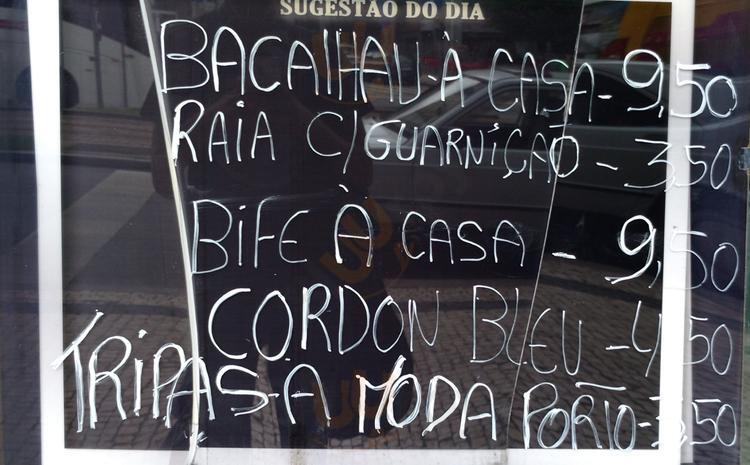 SUGESTÃO DO DIA
BACALHAU-À CASA-9,50
RAIA C/GUARNIÇÃO - 3,50
BIFE À CASA - 9,50
CORDON BLEU - 4,50
TRIPAS-A MODA PORTO-3,50